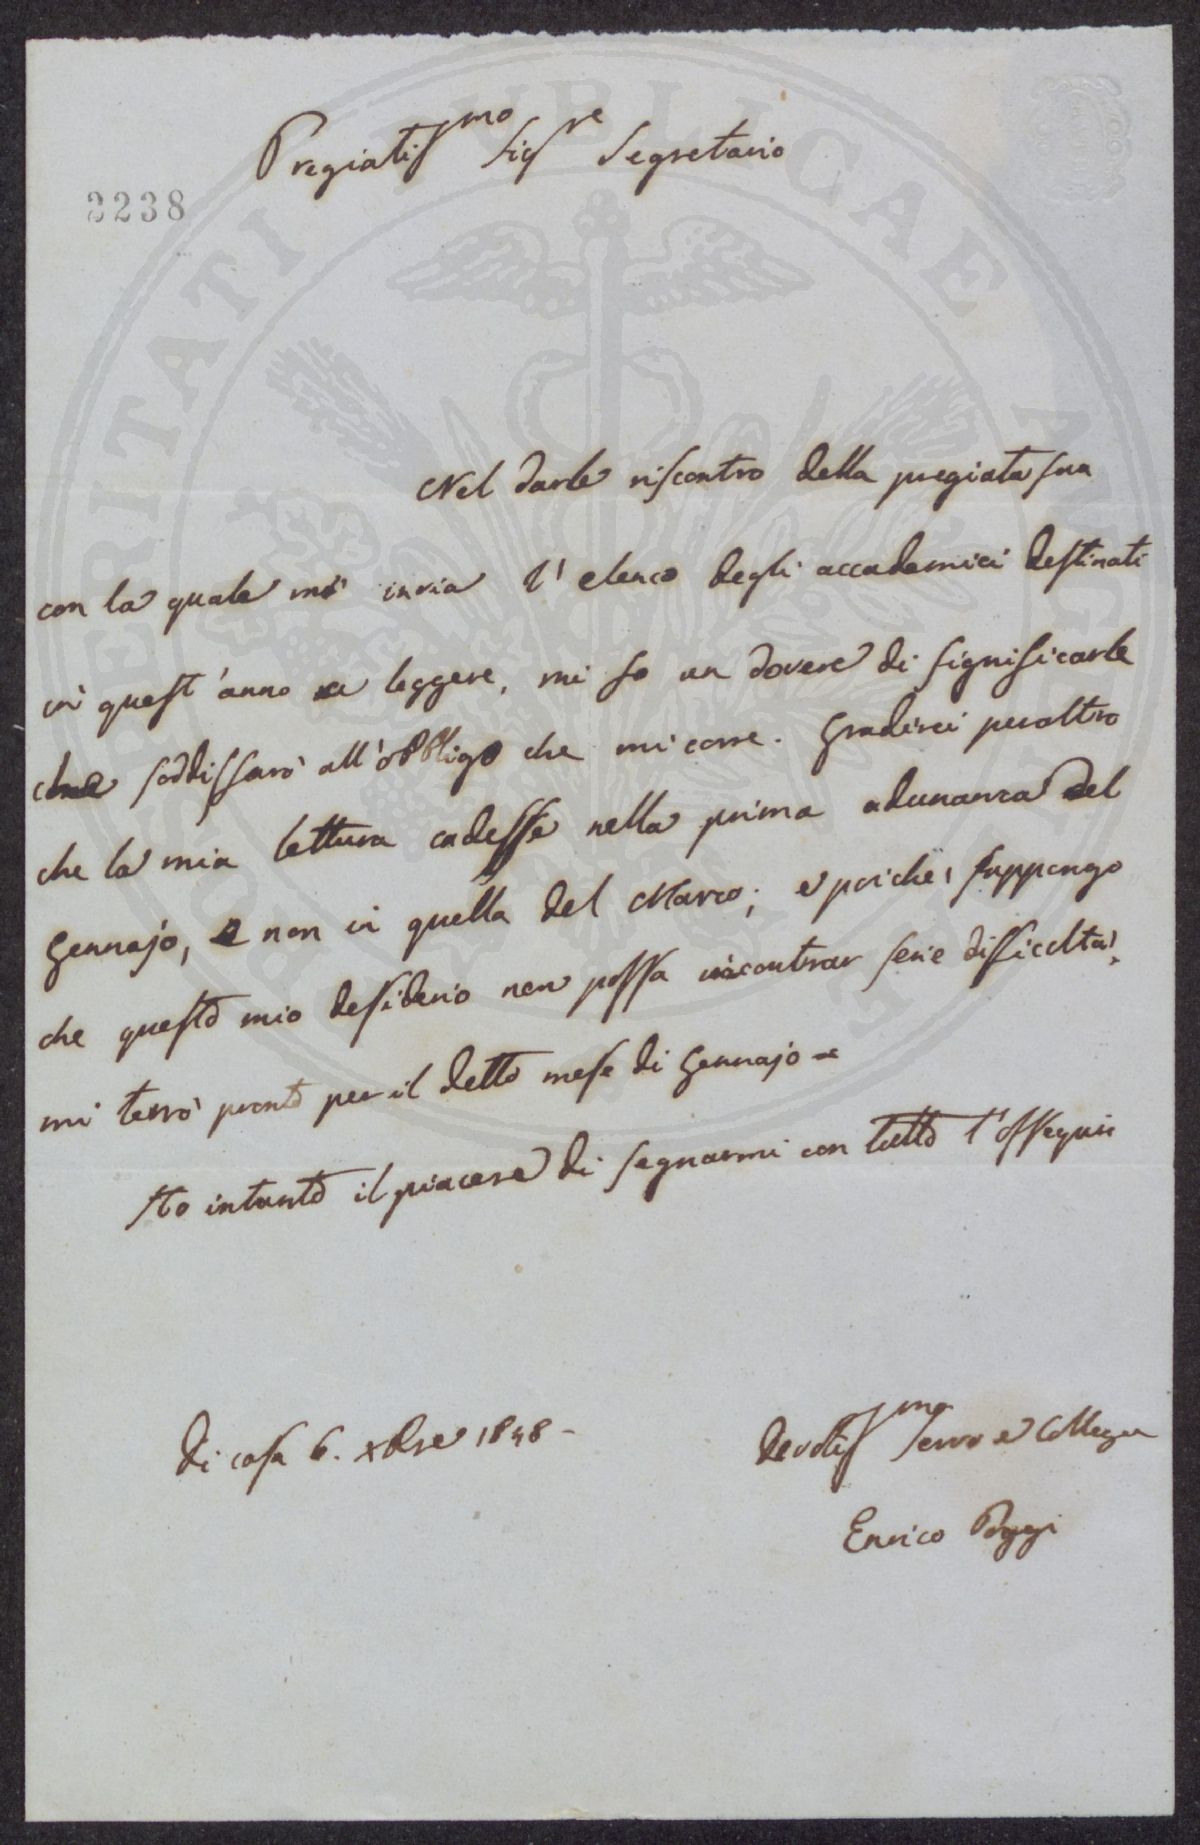 Pregiatissmo Sigre Segretario
2238
Nel darle riscontro della pregiata sua
con la quale mi invia l'elenco degli accademici destinati
in quest'anno a leggere, mi fo un dovere di significarle
che soddisfarò all'obbligo che mi corre. Gradirei peraltro
che la mia lettura cadesse nella prima adunanza del
Gennajo, e non in quella del Marzo; e poichè suppongo
che questo mio desiderio non possa incontrar serie difficoltà,
mi terrò pronto per il detto mese di Gennajo
Ho intanto il piacere di segnarmi con tutto l'ossequio
Di casa 6. xbre 1848 -
Devotissmo servo e Collega
Enrico Poggi
PROSPERITATI PUBLICAE AUGENDAE